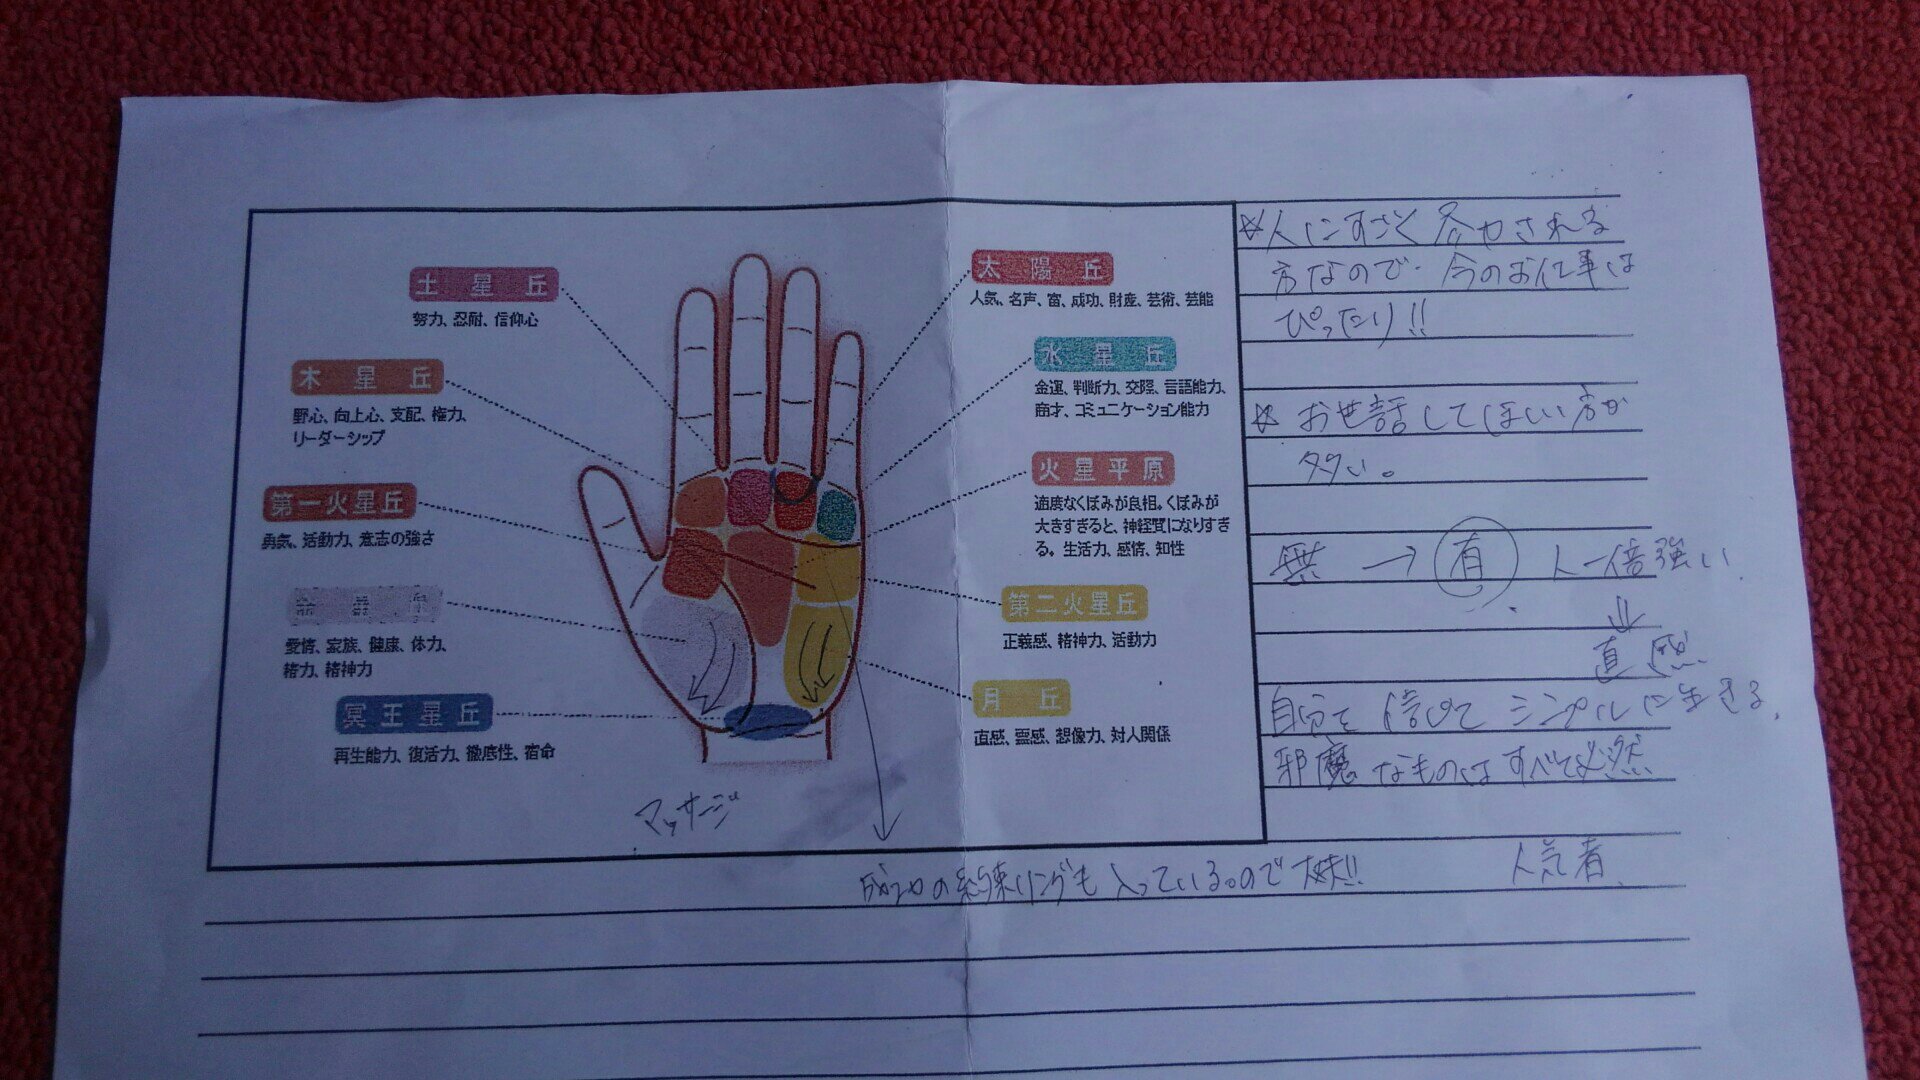 土星丘
努力、忍耐、信仰心
木星丘
野心、向上心、支配、権力、
リーダーシップ
第一火星丘
勇気、活動力、意志の強さ
金星丘
愛情、家族、健康、体力、
精力、精神力
冥王星丘
再生能力、復活力、徹底性、宿命
マッサージ
太陽丘
人気、名声、富、成功、財産、芸術、芸能
水星丘
金運、判断力、交際、言語能力、
商才、コミュニケーション能力
火星平原
適度なくぼみが良相。くぼみが
大きすぎると、神経質になりすぎ
る。生活力、感情、知性
第二火星丘
正義感、精神力、活動力
月丘
直感、霊感、想像力、対人関係
☆人にすごく される
方なので、今のお仕事は
ぴったり!!
☆お世話してほしい方が
多い。
無 → 有 人一倍強い
⇓
直感
自分を信じて シンプルに生きる。
邪魔なものはすべて必然
成功の約束リングも入っているので 大丈夫!!
人気者